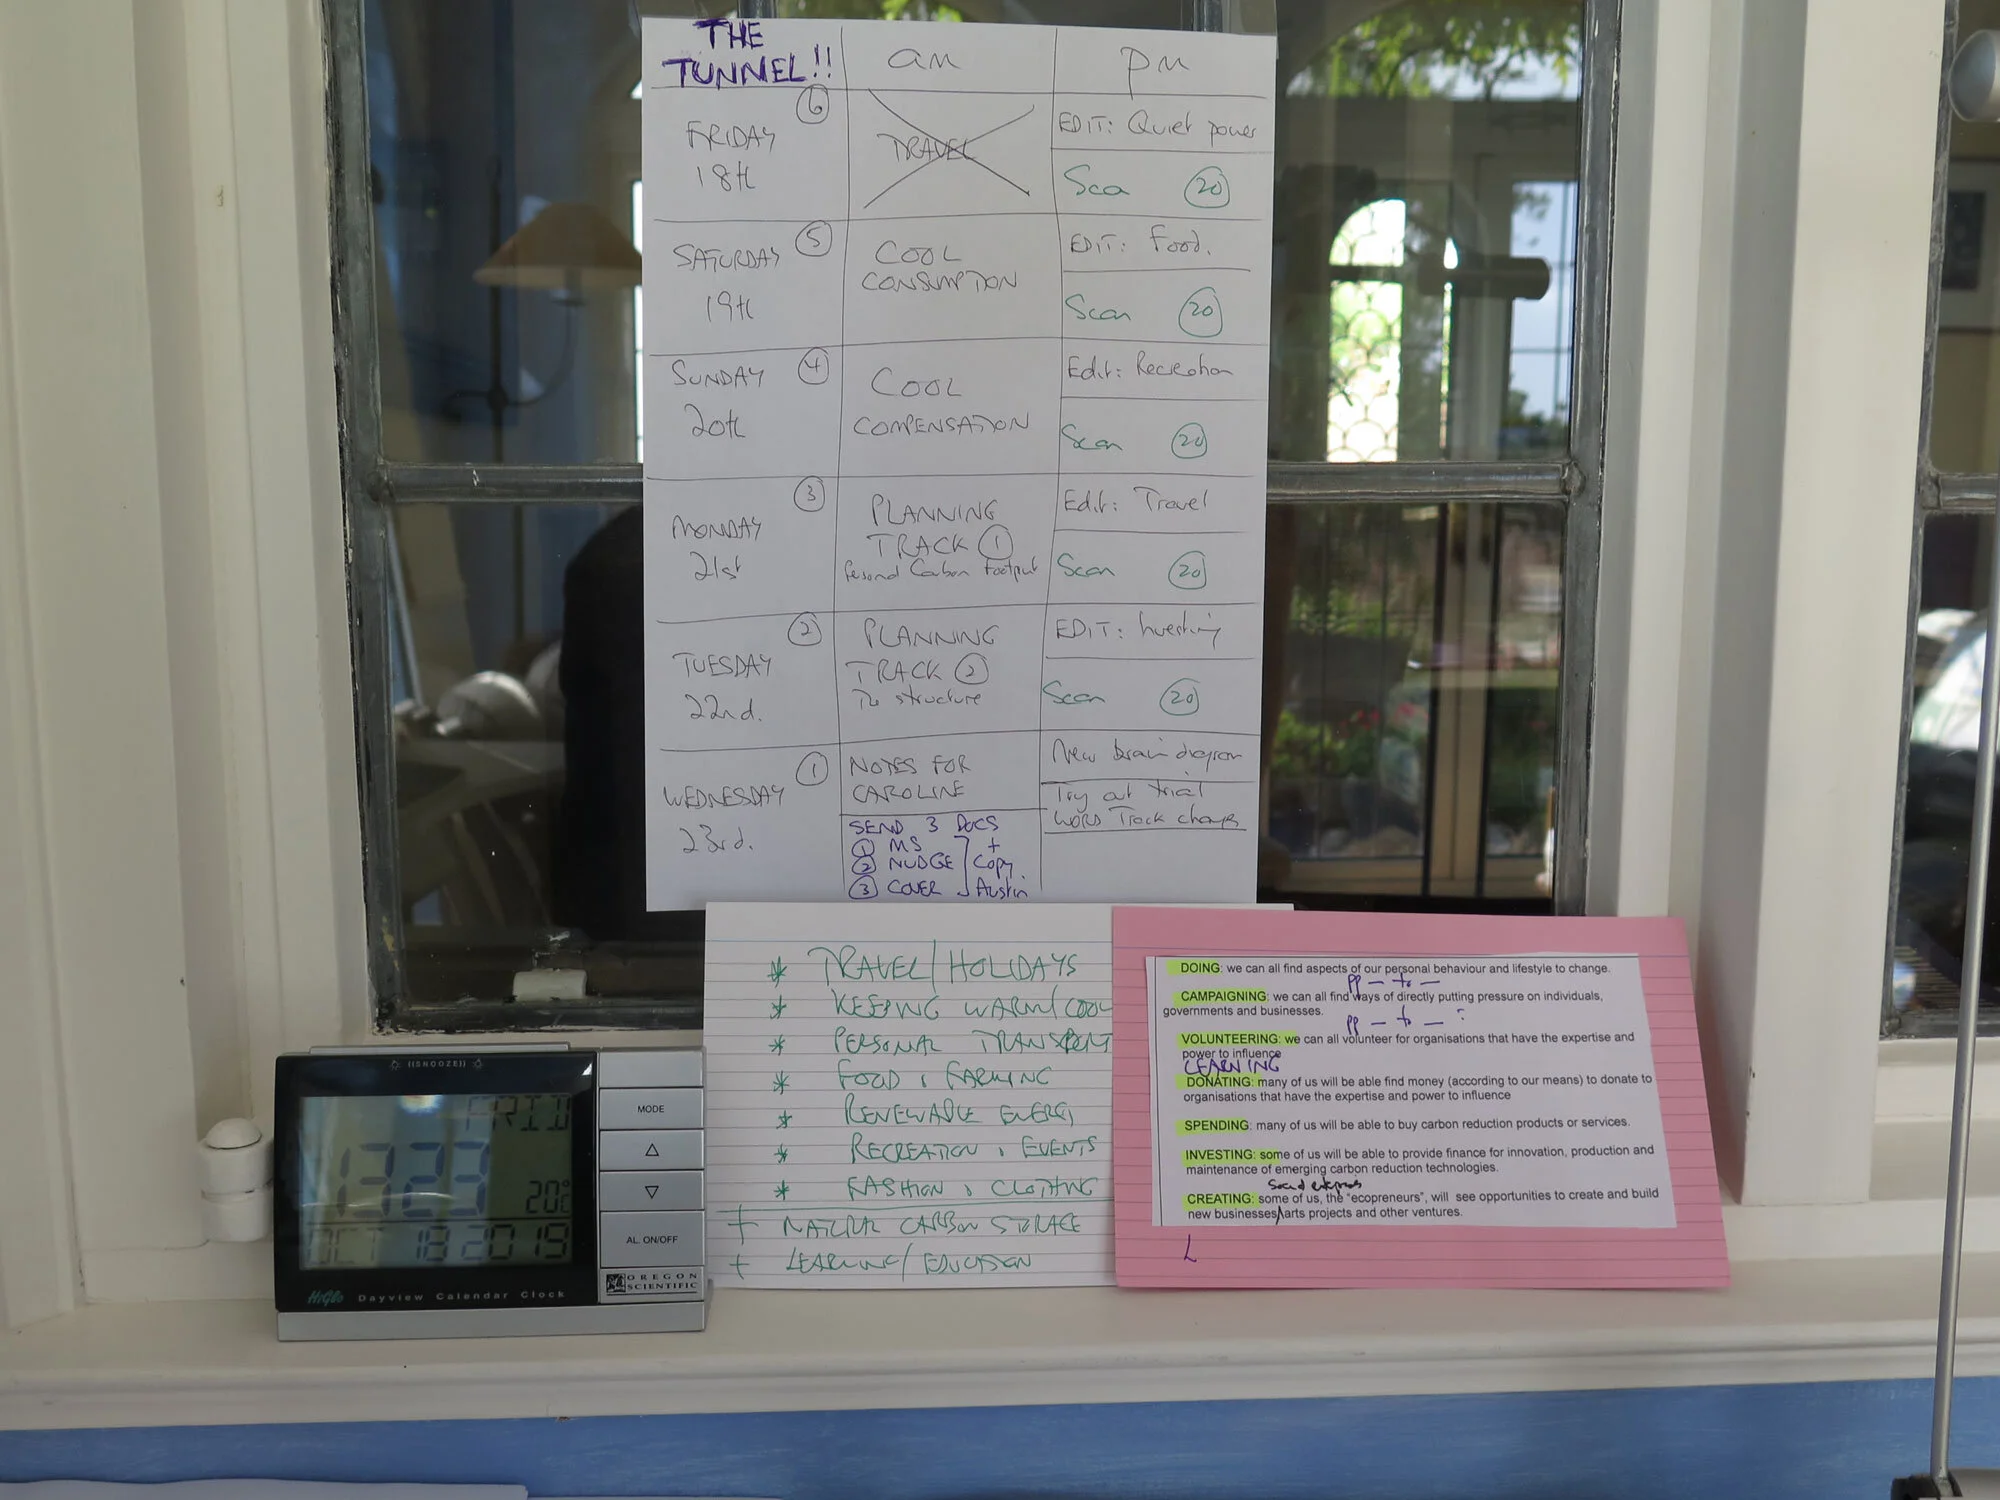 THE
TUNNEL!!
am
pm
FRIDAY
18th
6
TRAVEL
EDIT: Quiet power
Scan 20
SATURDAY
19th
5
COOL
CONSUMPTION
EDIT: Food.
Scan 20
SUNDAY
20th
4
COOL
COMPENSATION
Edit: Recreation
Scan 20
MONDAY
21st
3
PLANNING
TRACK 1
Personal Carbon Footprint
Edit: Travel
Scan 20
TUESDAY
22nd.
2
PLANNING
TRACK 2
The structure
EDIT: Investing
Scan 20
WEDNESDAY
23rd.
1
NOTES FOR
CAROLINE
SEND 3 DOCS
1 MS
2 NUDGE
3 COVER
+
Copy
Austin
New brain diagram
Try out trial
WORD Track changes
* TRAVEL/HOLIDAYS
* KEEPING WARM/COOL
* PERSONAL TRANSPORT
* FOOD & FARMING
* RENEWABLE ENERGY
* RECREATION & EVENTS
* FASHION & CLOTHING
+ NATURAL CARBON STORAGE
+ LEARNING/EDUCATION
DOING: we can all find aspects of our personal behaviour and lifestyle to change.
pp — to —
CAMPAIGNING: we can all find ways of directly putting pressure on individuals,
governments and businesses.
pp — to — ?
VOLUNTEERING: we can all volunteer for organisations that have the expertise and
power to influence
LEARNING
DONATING: many of us will be able find money (according to our means) to donate to
organisations that have the expertise and power to influence
SPENDING: many of us will be able to buy carbon reduction products or services.
INVESTING: some of us will be able to provide finance for innovation, production and
maintenance of emerging carbon reduction technologies.
Social enterprises
CREATING: some of us, the "ecopreneurs", will see opportunities to create and build
new businesses, arts projects and other ventures.
L
((SNOOZE))
FRI
13:23
20°C
OCT 18 2019
HiGlo Dayview Calendar Clock
MODE
AL. ON/OFF
OREGON
SCIENTIFIC